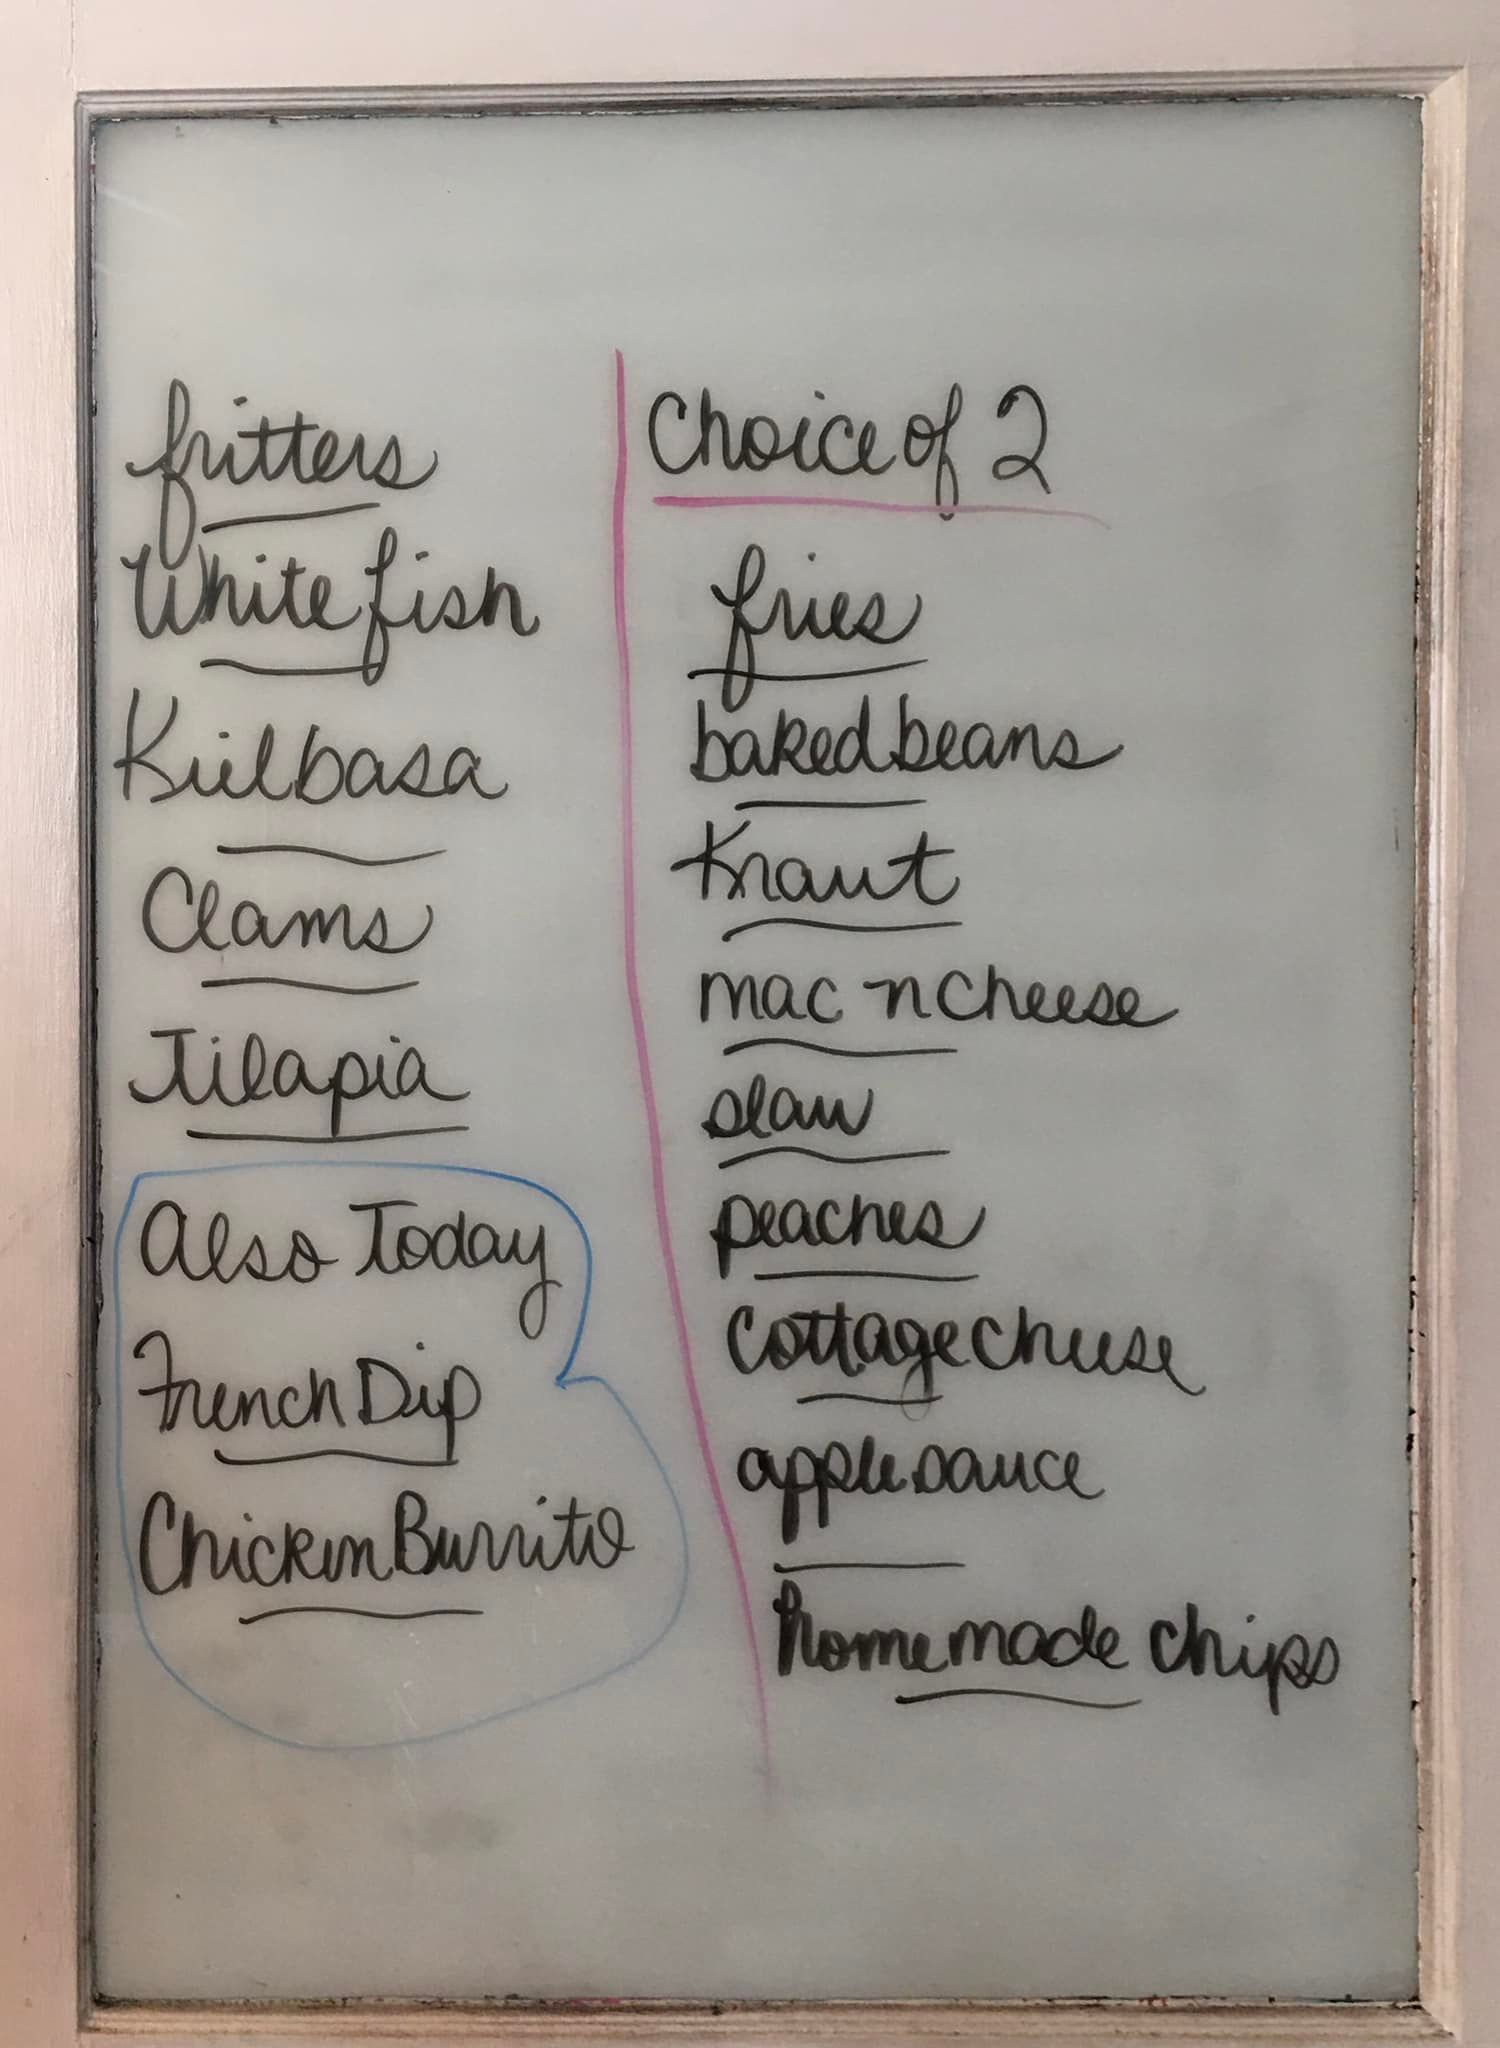 fritters
White fish
Kielbasa
Clams
Tilapia
Also Today
French Dip
Chicken Burrito
Choice of 2
fries
baked beans
Kraut
mac n cheese
slaw
peaches
Cottage cheese
applesauce
homemade chips